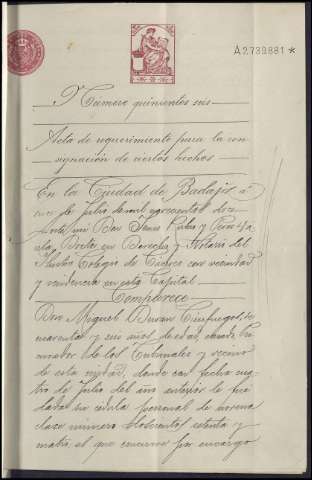 A2739881*
Numero quinientos seis
Acta de requerimiento para la con
signacion de ciertos hechos
En la Ciudad de Badajoz, á
once de Julio de mil novecientos doce
Ante mi Don
Doctor en Derecho y Notario del
Ilustre Colegio de Caceres con vecindad
y residencia en esta Capital
Comparece
Don Miguel Duran Cienfuegos, de
cuarenta y seis años de edad, casado, Pro
curador de los Tribunales y vecino
de esta ciudad, donde con fecha cua
tro de Julio del año anterior le fue
dada su cédula personal de novena
clase número doscientos setenta y
cuatro, el que concurre por encargo